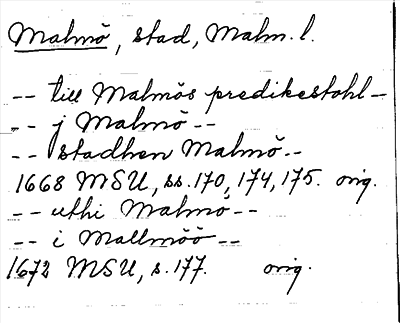 Malmö, stad, Malm. l.
-- till Malmös predikestohl -
-- j Malmö --
-- stadhen Malmö --
1668 MSU, ss. 170, 174, 175. orig.
-- uthi Malmö --
-- i Mallmöö --
1672 MSU, s. 177. orig.